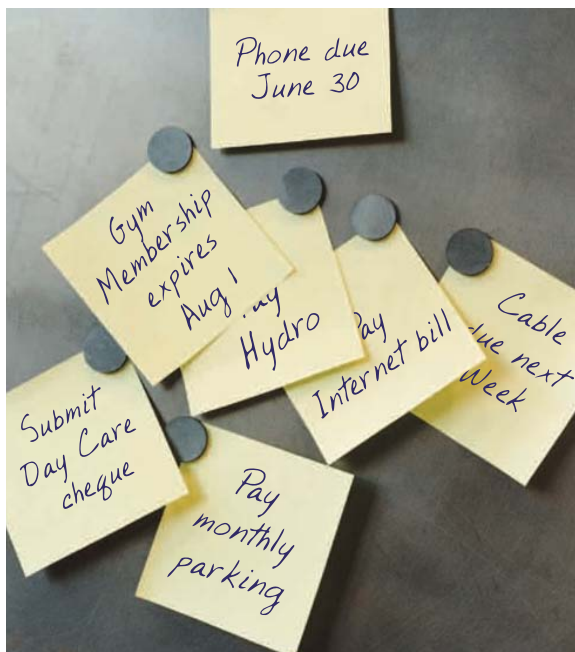 Phone due
June 30
Gym
Membership
expires
Aug 1
Hydro
Pay
Internet bill
Cable
due next
Week
Submit
Day Care
cheque
Pay
monthly
parking